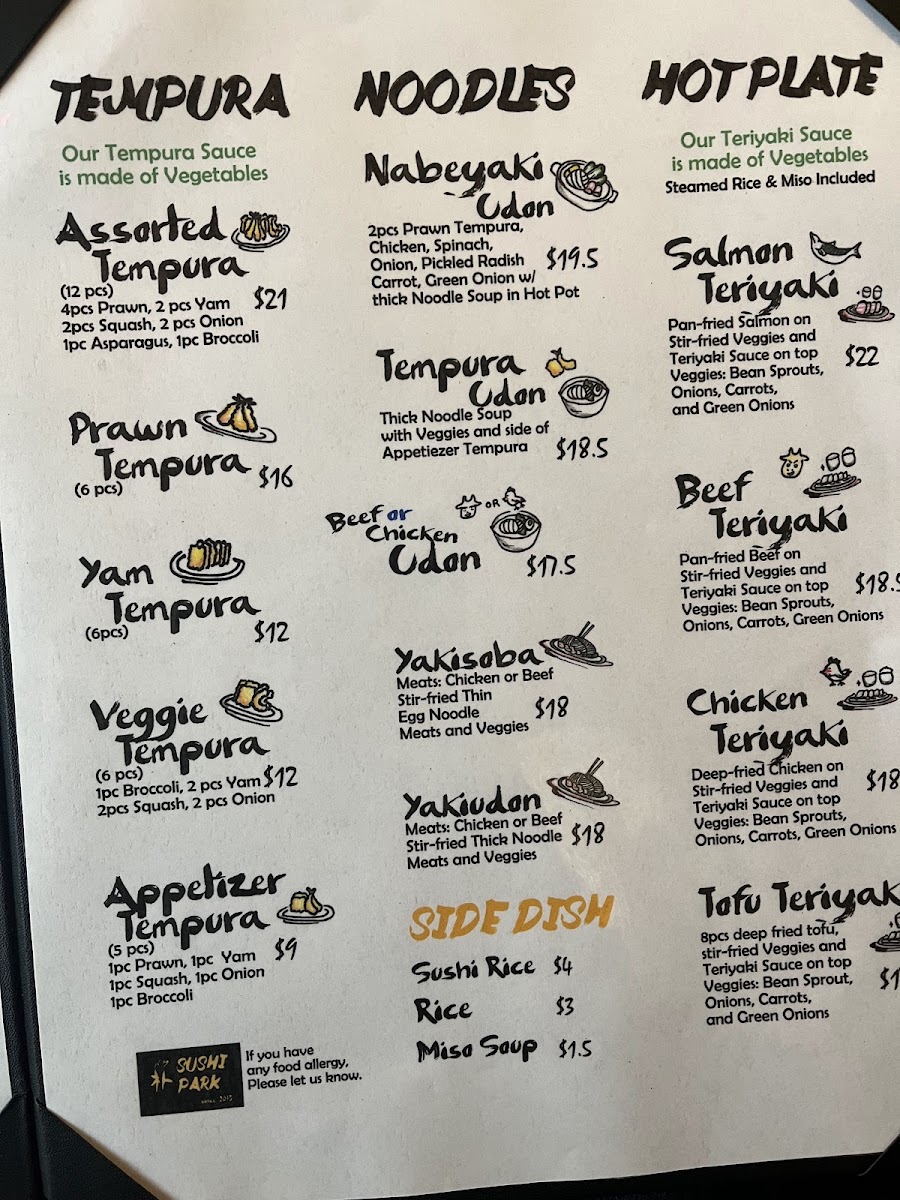 TEMPURA
Our Tempura Sauce
is made of Vegetables
Assorted
Tempura
(12 pcs)
4pcs Prawn, 2 pcs Yam
$21
2pcs Squash, 2 pcs Onion
1pc Asparagus, 1pc Broccoli
Prawn
Tempura
(6 pcs)
$16
Yam
Tempura
(6pcs)
$12
Veggie
Tempura
(6 pcs)
1pc Broccoli, 2 pcs Yam
$12
2pcs Squash, 2 pcs Onion
Appetizer
Tempura
(5 pcs)
1pc Prawn, 1pc Yam
$9
1pc Squash, 1pc Onion
1pc Broccoli
SUSHI
PARK
If you have
any food allergy,
Please let us know.
NOODLES
Nabeyaki
Udon
2pcs Prawn Tempura,
Chicken, Spinach,
Onion, Pickled Radish
$19.5
Carrot, Green Onion w/
thick Noodle Soup in Hot Pot
Tempura
Udon
Thick Noodle Soup
with Veggies and side of
Appetiezer Tempura
$18.5
Beef or
Chicken
OR
Udon
$17.5
Yakisoba
Meats: Chicken or Beef
Stir-fried Thin
Egg Noodle
$18
Meats and Veggies
Yakiudon
Meats: Chicken or Beef
Stir-fried Thick Noodle
$18
Meats and Veggies
SIDE DISH
Sushi Rice $4
Rice $3
Miso Soup $1.5
HOT PLATE
Our Teriyaki Sauce
is made of Vegetables
Steamed Rice & Miso Included
Salmon
Teriyaki
Pan-fried Salmon on
Stir-fried Veggies and
Teriyaki Sauce on top
$22
Veggies: Bean Sprouts,
Onions, Carrots,
and Green Onions
Beef
Teriyaki
Pan-fried Beef on
Stir-fried Veggies and
Teriyaki Sauce on top
$18.5
Veggies: Bean Sprouts,
Onions, Carrots, Green Onions
Chicken
Teriyaki
Deep-fried Chicken on
Stir-fried Veggies and
$18
Teriyaki Sauce on top
Veggies: Bean Sprouts,
Onions, Carrots, Green Onions
Tofu Teriyak
8pcs deep fried tofu,
stir-fried Veggies and
Teriyaki Sauce on top
Veggies: Bean Sprout,
$1
Onions, Carrots,
and Green Onions